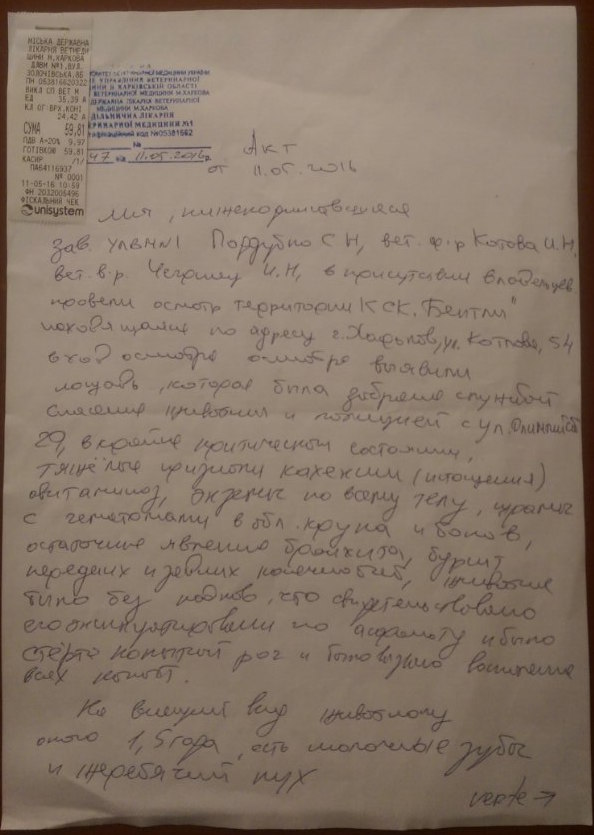 МІСЬКА ДЕРЖАВНА
ЛІКАРНЯ ВЕТМЕДИ
ЦИНИ М.ХАРКОВА
ДЛВМ №1,ВУЛ.
ЗОЛОЧІВСЬКА,8Б
ПН 053816620322
ВИКЛ СП ВЕТ М
ЕД 35.39 А
КЛ ОГ-ВРХ,КОНІ
24.42 А
СУМА 59,81
ПДВ А=20% 9.97
ГОТІВКОЮ 59.81
КАСИР /1/
ПА64116937
№ 0001
11-05-16 10:59
ФН 2032006496
ФІСКАЛЬНИЙ ЧЕК
unisystem
ВЕТЕРИНАРНОЇ МЕДИЦИНИ УКРАЇНИ
УПРАВЛІННЯ ВЕТЕРИНАРНОЇ
В ХАРКІВСЬКІЙ ОБЛАСТІ
ВЕТЕРИНАРНОЇ МЕДИЦИНИ М.ХАРКОВА
ДЕРЖАВНА ЛІКАРНЯ ВЕТЕРИНАРНОЇ
МЕДИЦИНИ М.ХАРКОВА
ДІЛЬНИЧНА ЛІКАРНЯ
МЕДИЦИНИ №1
код №05381662
№
47 від 11.05.2016р.
Акт
от 11.05.2016
Мы,
зав. С Н, вет. Котова И.Н,
вет. в-р. И.Н, в присутствии владельцев
провели осмотр территории КСК „Бентли"
по адресу г. Харьков, ул. Котлова, 54
в ход осмотра осмотра выявили
лошадь, которая была службой
спасение животных и полицией с ул.
29, в крайне критическом состоянии,
тяжёлые кахексии (истощения)
авитаминоз, по всему телу,
с гематомами в обл. крупа и боков,
явления бронхита, бурсит
передних и задних конечностей, животное
было без подков, что свидетельствовало
по асфальту и было
рог и было воспаление
всех копыт.
На внешний вид животному
около 1,5 года, есть молочные зубы
и жеребячий пух
verte →